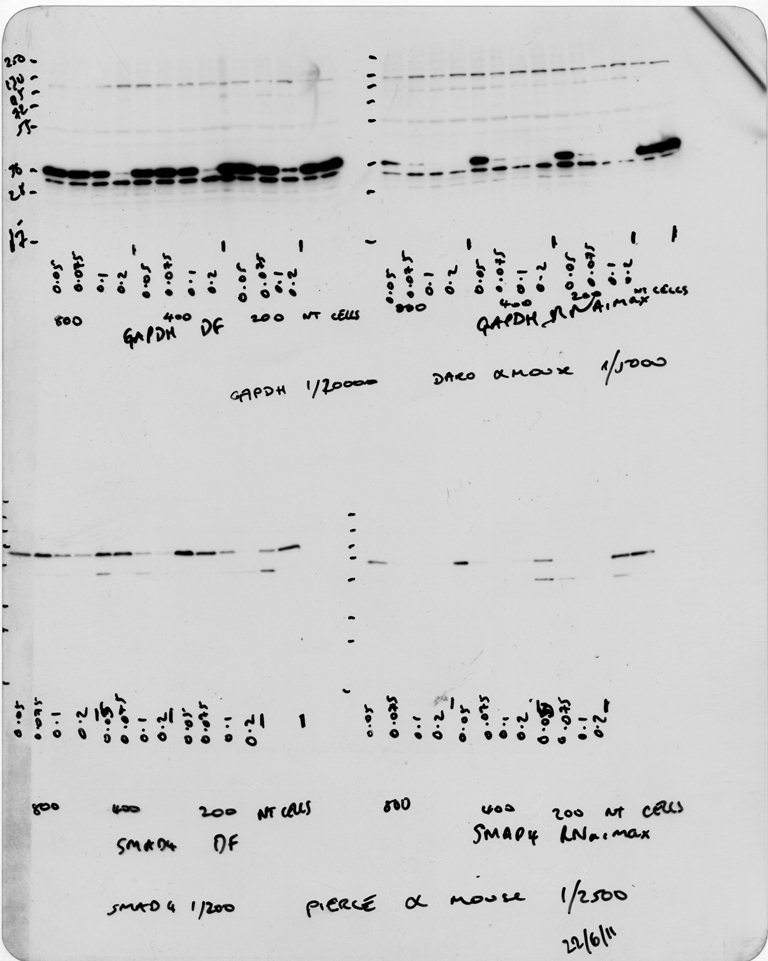 250
55
36
28
17
0.05 0.075 0.1 0.2 0.05 0.075 0.1 0.2 0.05 0.075 0.1 0.2
800 400 200 NT CELLS
GAPDH DF
0.05 0.075 0.1 0.2 0.05 0.075 0.1 0.2 0.05 0.075 0.1 0.2
800 400 200 NT CELLS
GAPDH RNAimax
GAPDH 1/20000 DAKO α MOUSE 1/5000
0.05 0.075 0.1 0.2 0.05 0.075 0.1 0.2 0.05 0.075 0.1 0.2
800 400 200 NT CELLS
SMAD4 DF
0.05 0.075 0.1 0.2 0.05 0.075 0.1 0.2 0.05 0.075 0.1 0.2
800 400 200 NT CELLS
SMAD4 RNAimax
SMAD4 1/200 PIERCE α MOUSE 1/2500
22/6/11